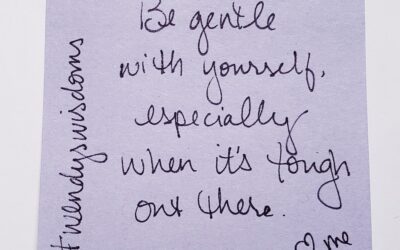 Be gentle
with yourself,
especially
when it's tough
out there.
♡ me
#wendyswisdoms